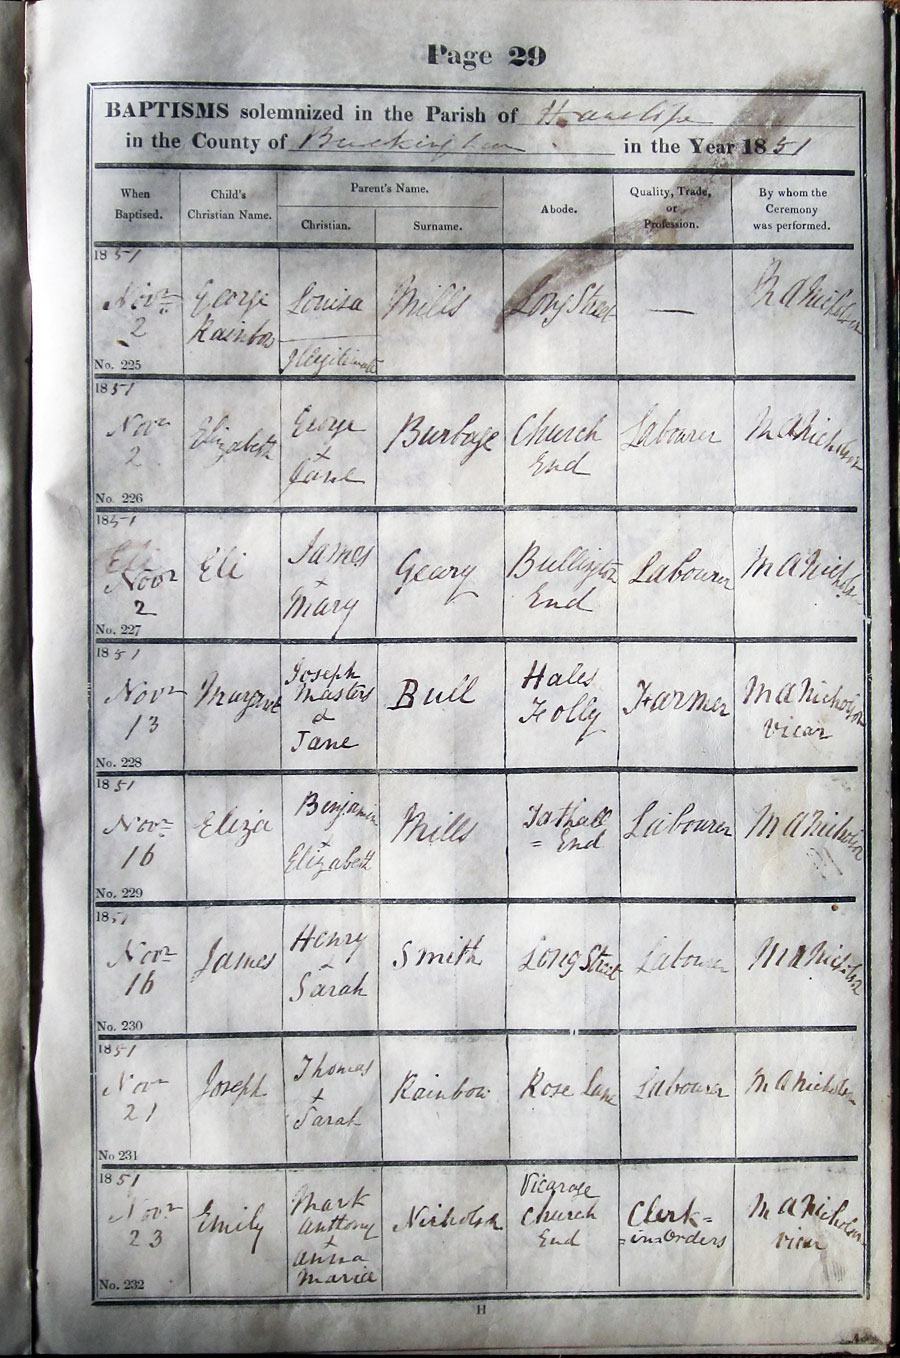 Page 29
BAPTISMS solemnized in the Parish of Hanslope
in the County of Buckingham in the Year 1851
When Baptised.
Child's Christian Name.
Parent's Name.
Christian.
Surname.
Abode.
Quality, Trade, or Profession.
By whom the Ceremony was performed.
1851
Novr 2
George Rainbow
Louisa
Illegitimate
Mills
Long Street
—
M A Nicholson
No. 225
1851
Novr 2
Elizabeth
George + Jane
Burbage
Church End
Labourer
M A Nicholson
No. 226
1851
Eli
Novr 2
Eli
James + Mary
Geary
Bullington End
Labourer
M A Nicholson
No. 227
1851
Novr 13
Joseph Masters & Jane
Bull
Hales Folly
Farmer
M A Nicholson vicar
No. 228
1851
Novr 16
Eliza
Benjamin + Elizabeth
Mills
Tathall = End
Labourer
M A Nicholson
No. 229
1851
Novr 16
James
Henry + Sarah
Smith
Long Street
Labourer
M A Nicholson
No. 230
1851
Novr 21
Joseph
Thomas + Sarah
Rainbow
Rose Lane
Labourer
M A Nicholson
No. 231
1851
Novr 23
Emily
Mark Anthony + Anna Maria
Nicholson
Vicarage Church End
Clerk = in = Orders
M A Nicholson vicar
No. 232
H